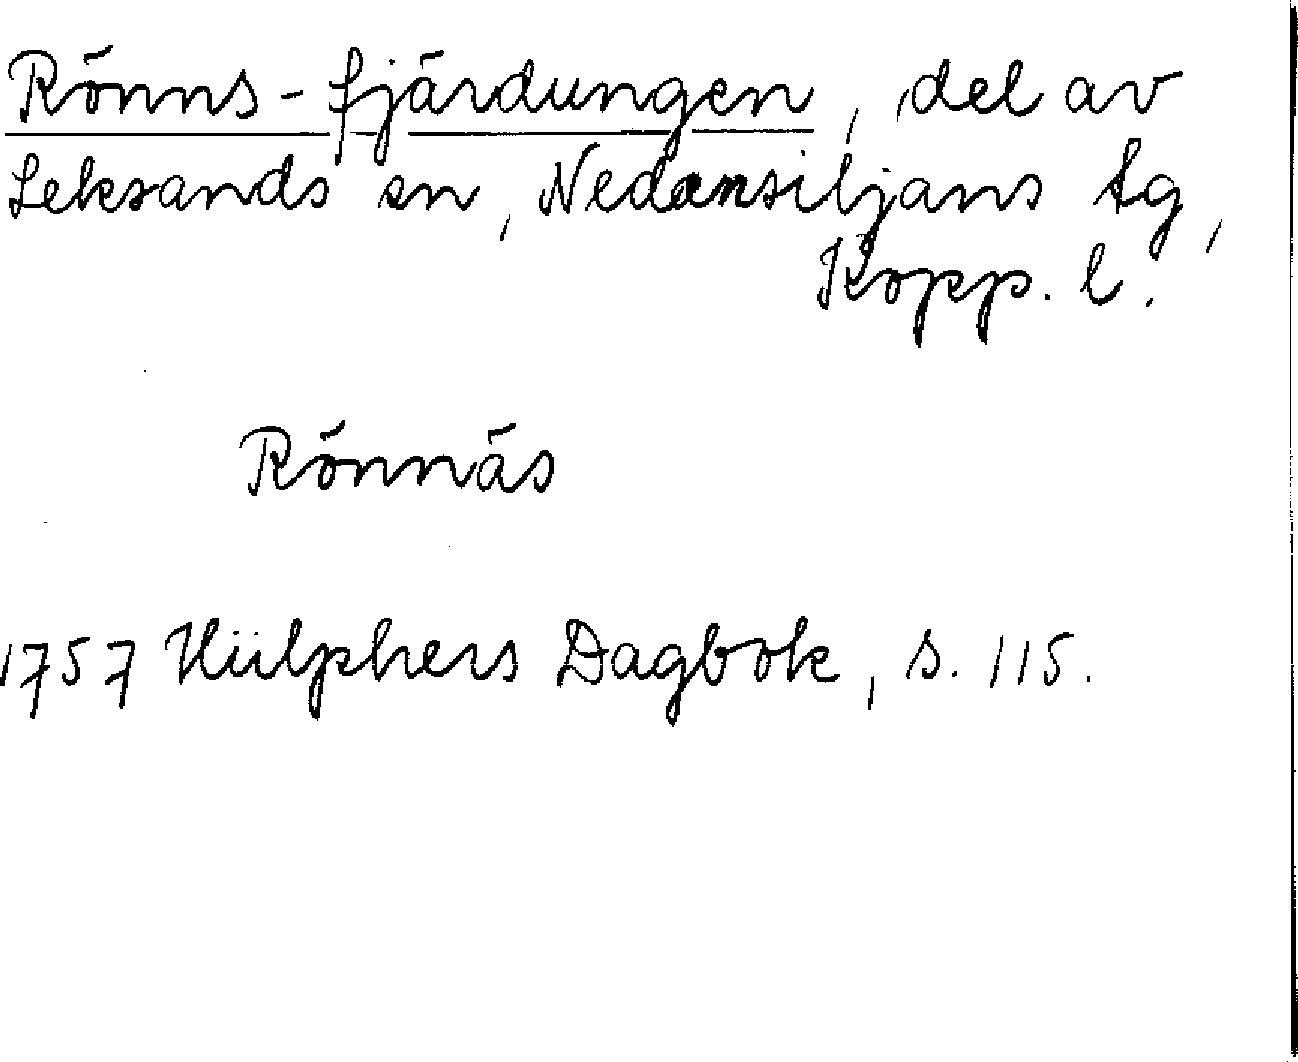 Rönns-fjärdungen, del av
Leksands sn, Nedansiljans tg,
Kopp. l.
Rönnäs
1757 Hülphers Dagbok, s. 115.